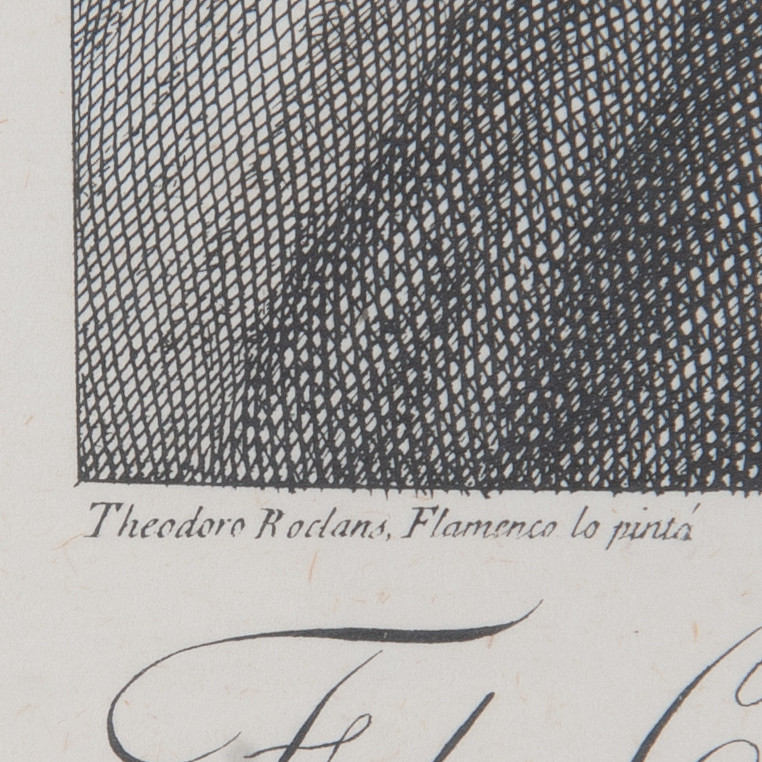 Theodoro Roclans, Flamenco lo pintá
El C